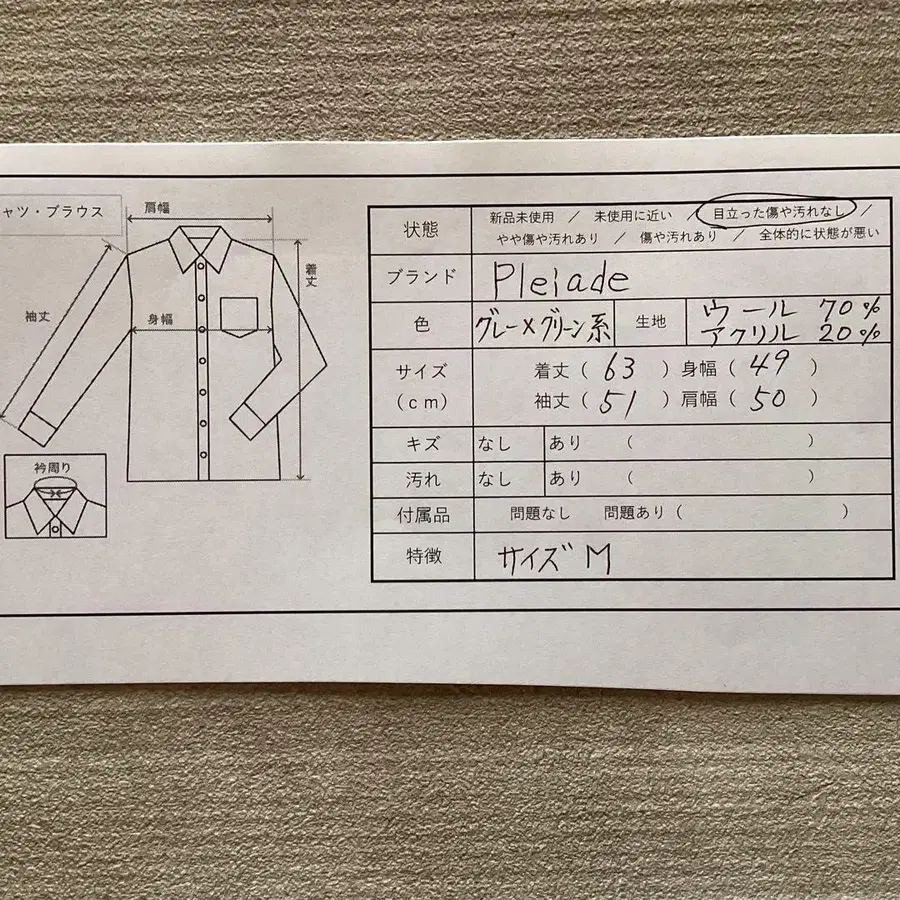 ャツ・ブラウス
肩幅
着丈
袖丈
身幅
衿周り
状態
新品未使用 / 未使用に近い / 目立った傷や汚れなし /
やや傷や汚れあり / 傷や汚れあり / 全体的に状態が悪い
ブランド
Pleiade
色
グレー×グリーン系
生地
ウール 70%
アクリル 20%
サイズ
(cm)
着丈( 63 )身幅( 49 )
袖丈( 51 )肩幅( 50 )
キズ
なし
あり ( )
汚れ
なし
あり ( )
付属品
問題なし 問題あり( )
特徴
サイズM